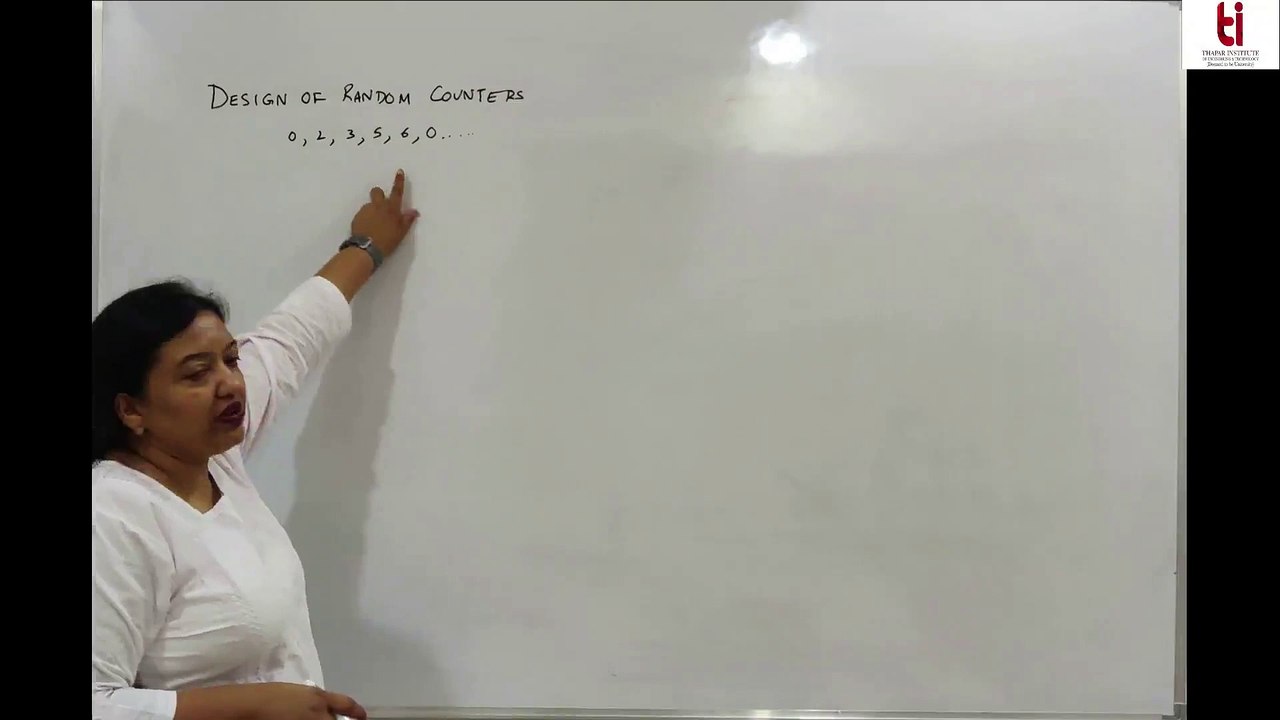 DESIGN OF RANDOM COUNTERS
0, 2, 3, 5, 6, 0.....
ti
THAPAR INSTITUTE
OF ENGINEERING & TECHNOLOGY
(Deemed to be University)